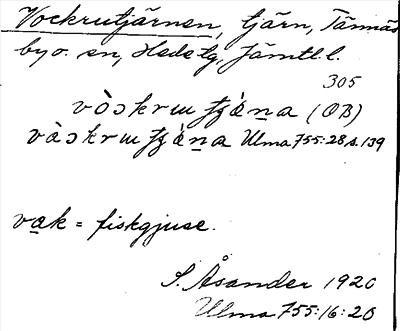 Vockrutjärnen, tjärn, Tännäs
by o. sn, Hede tg, Jämtl. l.
305
vòɔkrɯ (OB)
vàɔkrɯ Ulma 755:28 s. 139
vak = fiskgjuse.
S. Åsander 1920
Ulma 755:16:20